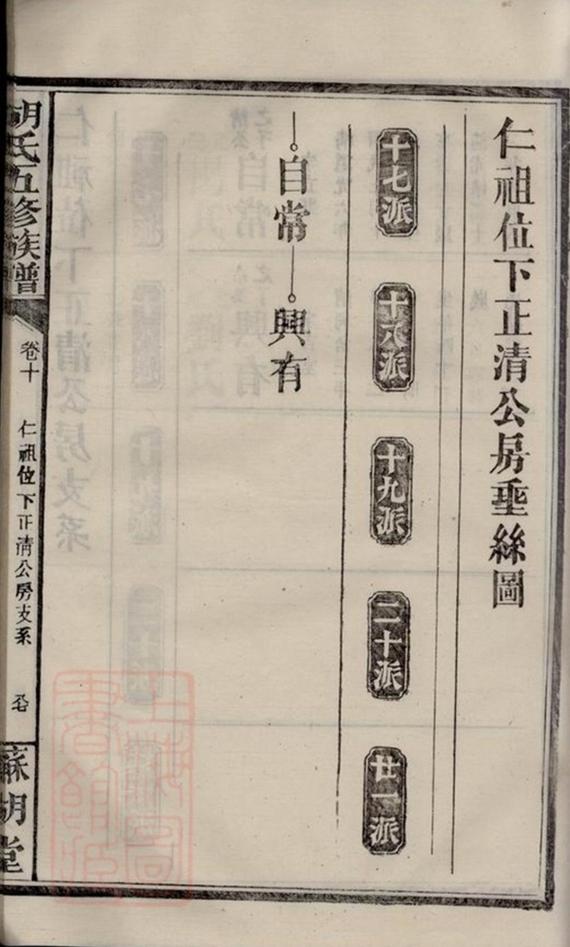 仁祖位下正清公房垂絲圖
十七派
十六派
十九派
二十派
廿一派
自常
興有
胡氏五修族譜
卷十
仁祖位下正清公房支系
蘇胡堂